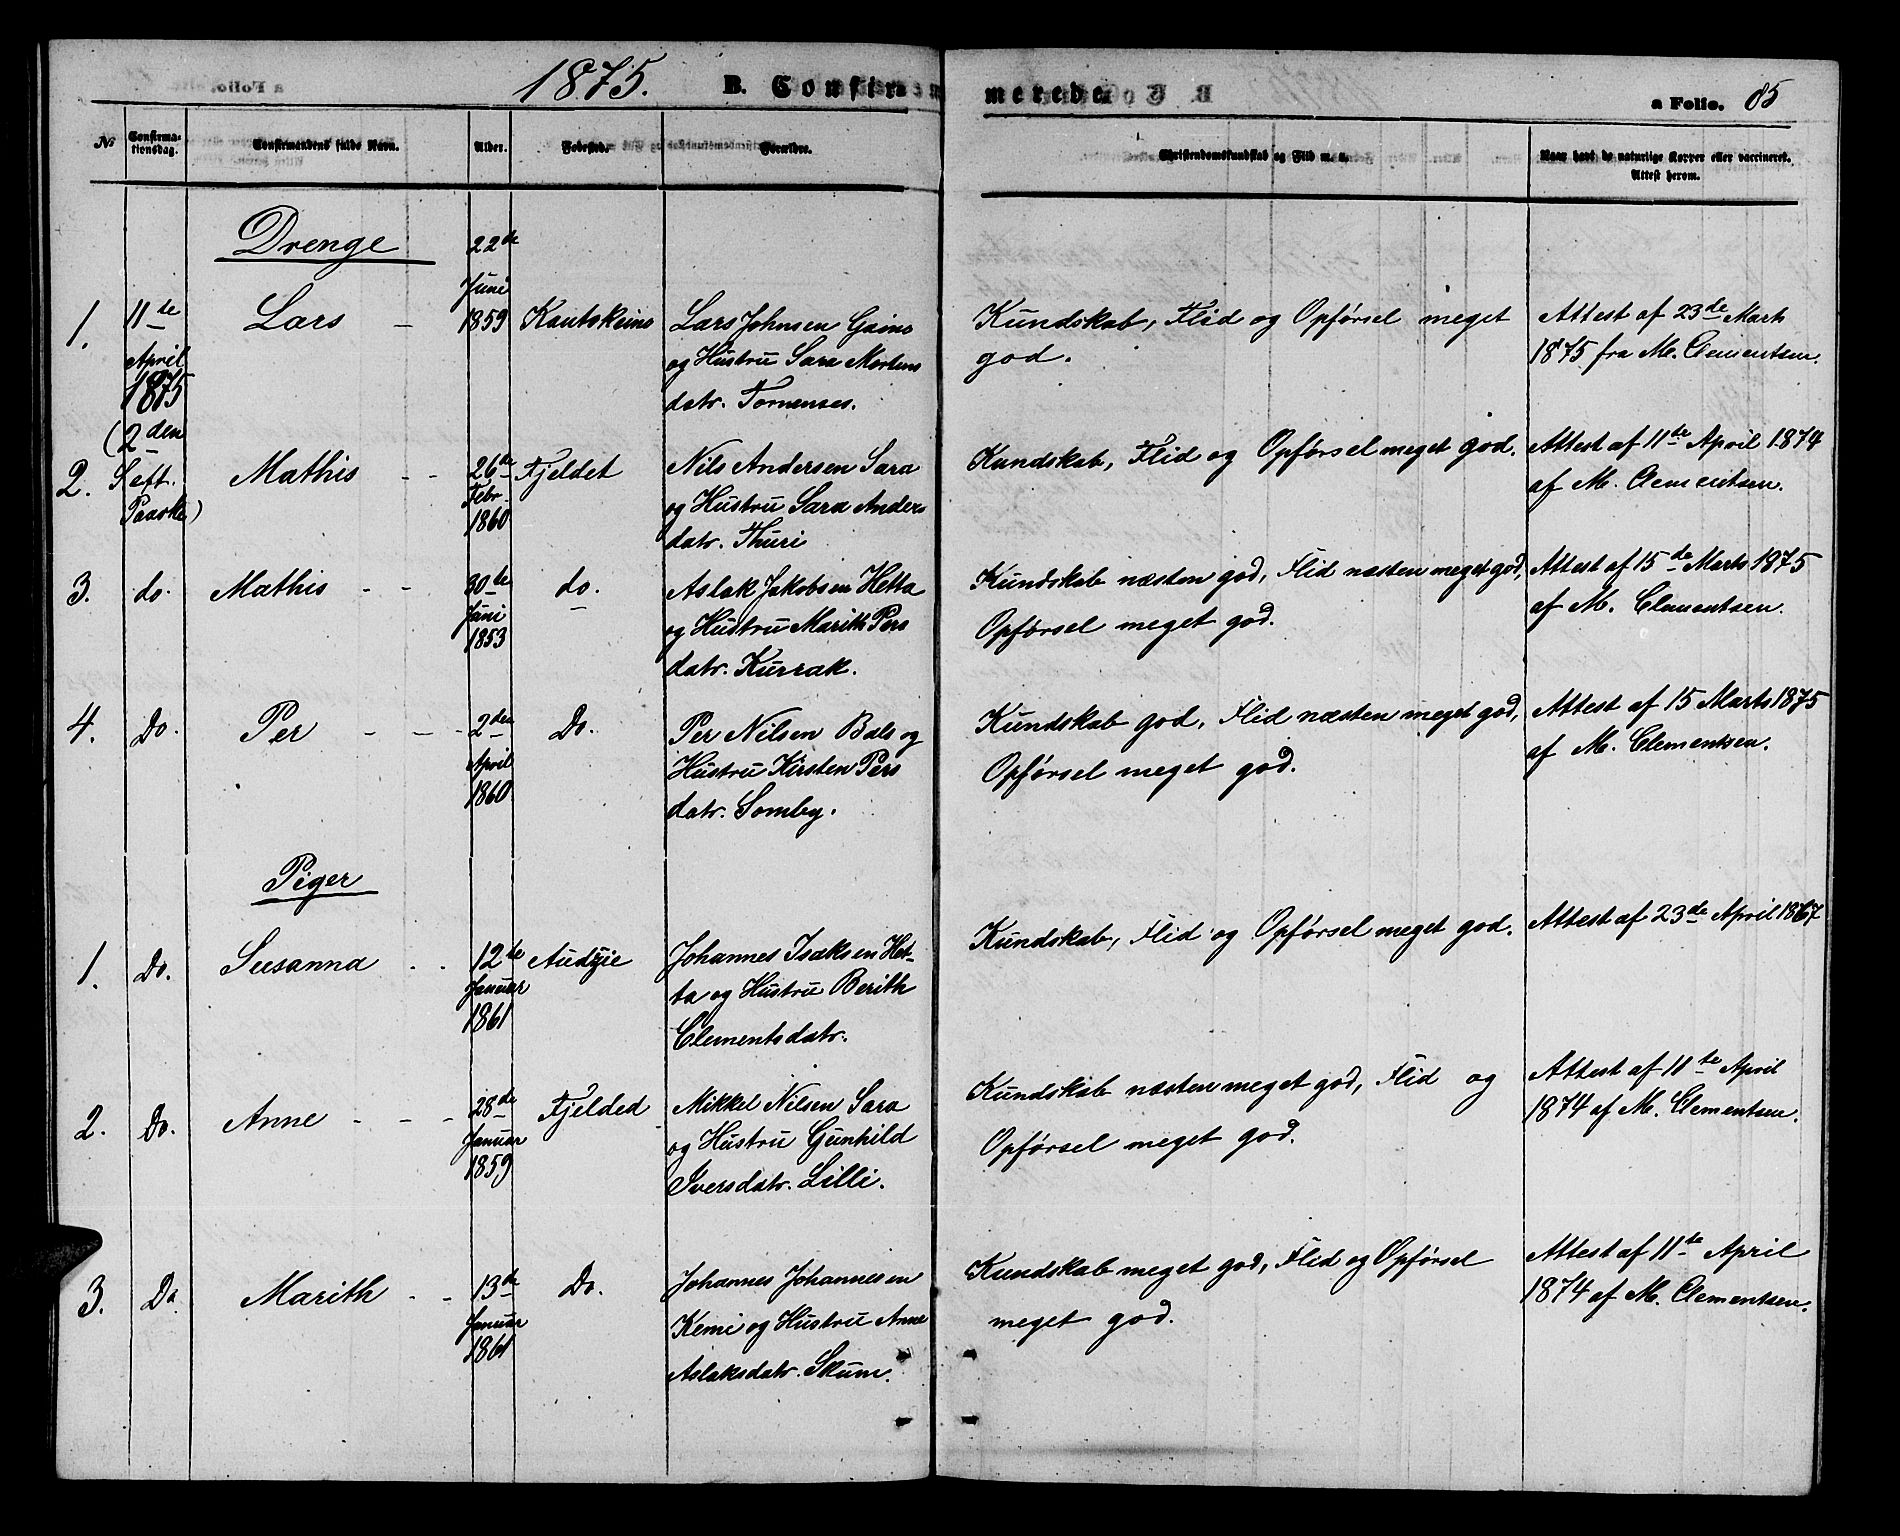 1875. B. Confirmerede. a Folio. 85
№ Confirmationsdag. Confirmandens fulde Navn. Alder. Fødested. Forældre. Christendomskundskab og Flid m. m. Naar havt de naturlige Kopper eller vaccineret. Attest herom.
Drenge
1. 11te April 1875 (2den S. eft. Paaske) Lars – 22de Juni 1859 Kautokeino
Lars Johnsen Gaino
og Hustru Sara Mortens
datr. Tornenses.
Kundskab, Flid og Opførsel meget
god.
Attest af 23de Marts
1875 fra M. Clementsen.
2. Mathis - - 26de Febr. 1860 Fjeldet
Nils Andersen Sara
og Hustru Sara Anders
datr. Thuri
Kundskab, Flid og Opførsel meget god.
Attest af 11te April 1874
af M. Clementsen.
3. do. Mathis - - 30te Juni 1853 do.
Aslak Jakobsen Hetta
og Hustru Marith Pers
datr. Kurrak.
Kundskab næsten god, Flid næsten meget god,
Opførsel meget god.
Attest af 15de Marts 1875
af M. Clementsen.
4. Do. Per - - - 2den April 1860 Do.
Per Nilsen Bals og
Hustru Kirsten Pers
datr. Somby.
Kundskab god, Flid næsten meget god,
Opførsel meget god.
Attest af 15 Marts 1875
af M. Clementsen.
Piger
1. Do. Susanna - - 12te Januar 1861 Audsjie
Johannes Isaksen Het-
ta og Hustru Berith
Clementsdatr.
Kundskab, Flid og Opførsel meget god.
Attest af 23de April 1867
2. Do. Anne - - - 28de Januar 1859 Fjelded
Mikkel Nilsen Sara
og Hustru Gunhild
Iversdatr. Lilli.
Kundskab næsten meget god, Flid og
Opførsel meget god.
Attest af 11te April
1874 af M. Clementsen.
3. Do Marith - - 13de Januar 1861 Do.
Johannes Johannesen
Kemi og Hustru Anne
Aslaksdatr. Skum.
Kundskab meget god, Flid og Opførsel
meget god.
Attest af 11te April
1874 af M. Clementsen.